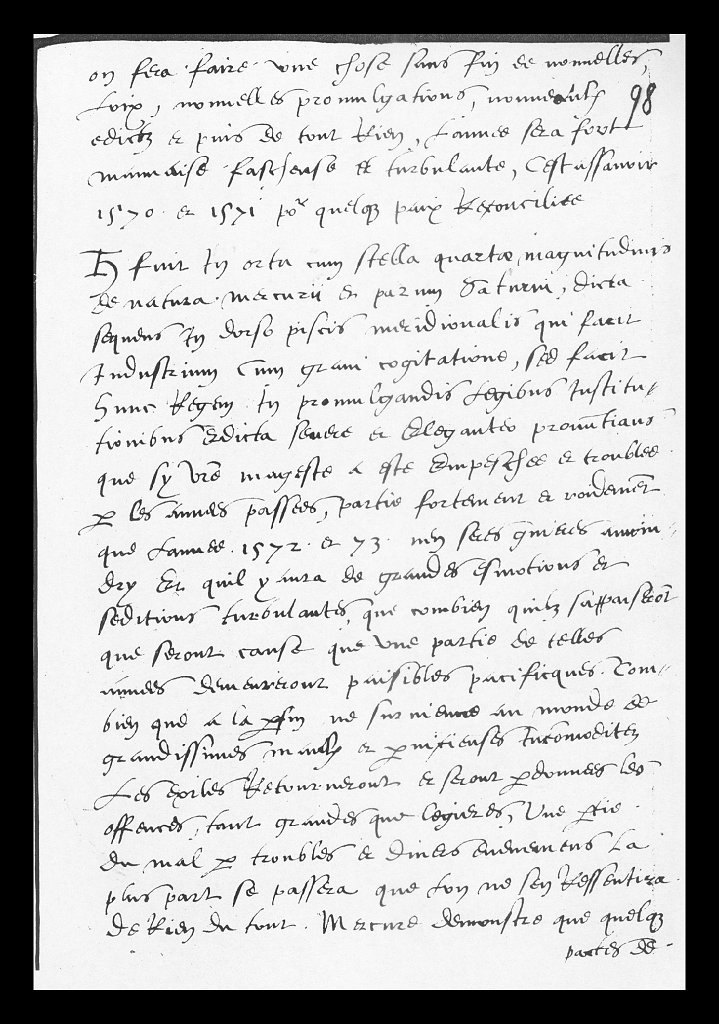 on fera faire une chose sans fin de nouvelles
loix, nouvelles promulgations, nouveaulx
98
edictz et puis de tout Rien, Lannee sera fort
mauvaise fascheuse et turbulante, Cest assavoir
1570. et 1571 po.r quelq3 paix Reconciliee
fuit In ortu cum stella quartae magnitudinis
de natura mercurii et parum Saturni, dicta
sequens In dorso piscis meridionalis qui facit
Industrium Cum gravi cogitatione, sed facit
hunc Regem In promulgandis Legibus Institu-
tionibus Edicta severe et Eleganter pronuntians
que sy vre mageste a este Empeschee et troublee
p les annees passees, partie fortement et roidement
que Lannee. 1572. et 73. nen seres gueres amoin-
dry Et quil y aura de grandes esmotions et
seditions turbulantes, que combien quilz sappaiseront
que seront cause que une partie de telles
annees demeureront paisibles pacificques. Com-
bien que a la pfin ne survienne au monde de
grandissimes maulx et pnicieuses Incomoditez
Les exiles Retourneront et seront pdonnees les
offences, tant grandes que legieres, Une ptie
du mal p troubles et divers evenemens La
plus part se passera que Lon ne sen Ressentira
de Rien du tout. Mercure demonstre que quelq3
partes de